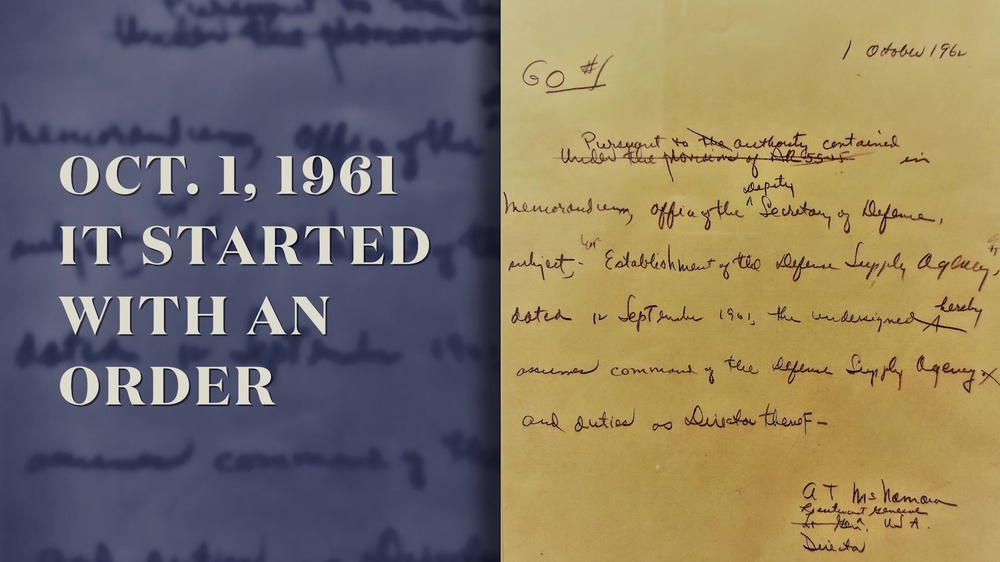 OCT. 1, 1961
IT STARTED
WITH AN
ORDER
1 October 1961
GO #1
Pursuant to the authority contained
Under the provision of AR 55-5 in
Deputy
Memorandum, Office of the ^ Secretary of Defense,
subject, "Establishment of the Defense Supply Agency",
hereby
dated 12 September 1961, the undersigned ^
assumes command of the Defense Supply Agency
and duties as Director thereof-
A T McNamara
Lieutenant General
Lt Gen, USA.
Director